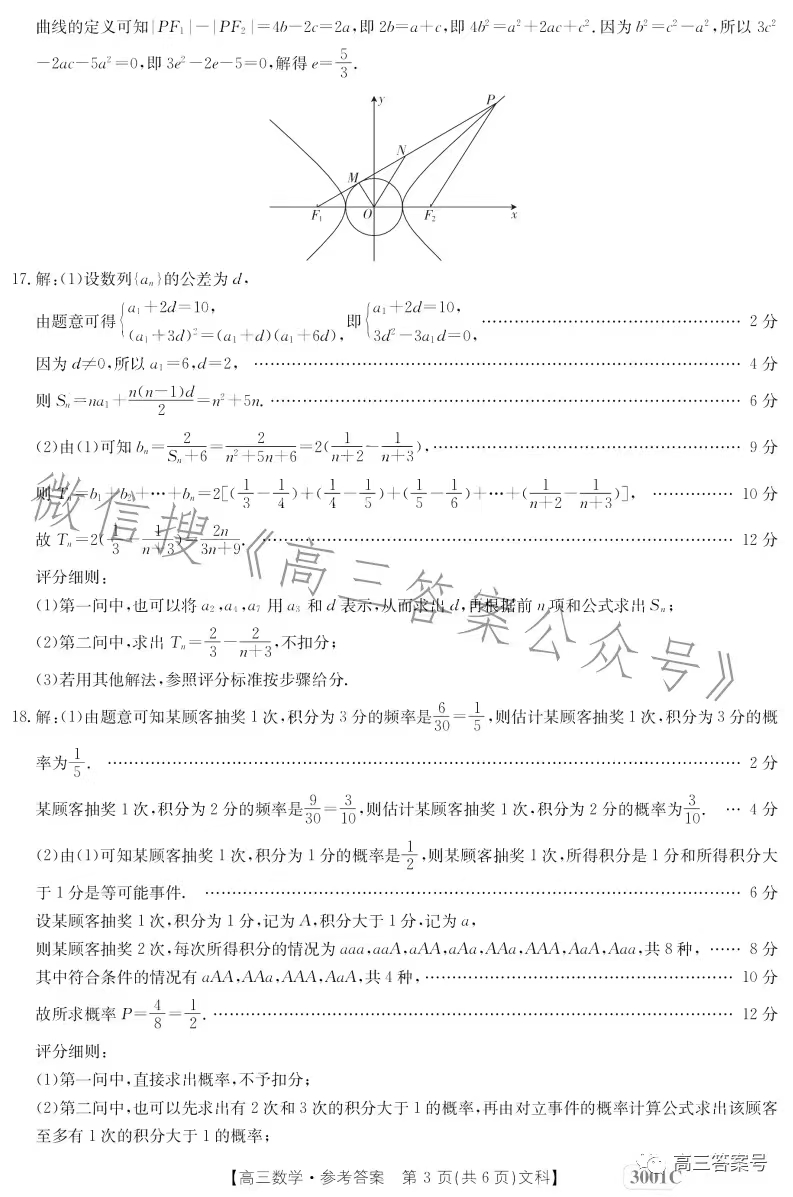 曲线的定义可知|PF₁|－|PF₂|＝4b－2c＝2a,即 2b＝a＋c,即 4b²＝a²＋2ac＋c².因为 b²＝c²－a²,所以 3c²
－2ac－5a²＝0,即 3e²－2e－5＝0,解得 e＝5/3.
y
P
N
M
F₁
O
F₂
x
17.解:(1)设数列{aₙ}的公差为 d,
由题意可得{a₁＋2d＝10, (a₁＋3d)²＝(a₁＋d)(a₁＋6d), 即{a₁＋2d＝10, 3d²－3a₁d＝0, …… 2 分
因为 d≠0,所以 a₁＝6,d＝2, …… 4 分
则 Sₙ＝na₁＋n(n－1)d/2＝n²＋5n. …… 6 分
(2)由(1)可知 bₙ＝2/(Sₙ＋6)＝2/(n²＋5n＋6)＝2(1/(n＋2)－1/(n＋3)), …… 9 分
则 Tₙ＝b₁＋b₂＋…＋bₙ＝2[(1/3－1/4)＋(1/4－1/5)＋(1/5－1/6)＋…＋(1/(n＋2)－1/(n＋3))], …… 10 分
故 Tₙ＝2(1/3－1/(n＋3))＝2n/(3n＋9). …… 12 分
评分细则:
(1)第一问中,也可以将 a₂,a₄,a₇ 用 a₃ 和 d 表示,从而求出 d,再根据前 n 项和公式求出 Sₙ;
(2)第二问中,求出 Tₙ＝2/3－2/(n＋3),不扣分;
(3)若用其他解法,参照评分标准按步骤给分.
微信搜《高三答案公众号》
18.解:(1)由题意可知某顾客抽奖 1 次,积分为 3 分的频率是6/30＝1/5,则估计某顾客抽奖 1 次,积分为 3 分的概
率为1/5. …… 2 分
某顾客抽奖 1 次,积分为 2 分的频率是9/30＝3/10,则估计某顾客抽奖 1 次,积分为 2 分的概率为3/10. … 4 分
(2)由(1)可知某顾客抽奖 1 次,积分为 1 分的概率是1/2,则某顾客抽奖 1 次,所得积分是 1 分和所得积分大
于 1 分是等可能事件. …… 6 分
设某顾客抽奖 1 次,积分为 1 分,记为 A,积分大于 1 分,记为 a,
则某顾客抽奖 2 次,每次所得积分的情况为 aaa,aaA,aAA,aAa,AAa,AAA,AaA,Aaa,共 8 种, …… 8 分
其中符合条件的情况有 aAA,AAa,AAA,AaA,共 4 种, …… 10 分
故所求概率 P＝4/8＝1/2. …… 12 分
评分细则:
(1)第一问中,直接求出概率,不予扣分;
(2)第二问中,也可以先求出有 2 次和 3 次的积分大于 1 的概率,再由对立事件的概率计算公式求出该顾客
至多有 1 次的积分大于 1 的概率;
高三答案号
【高三数学·参考答案 第 3 页(共 6 页)文科】 3001C